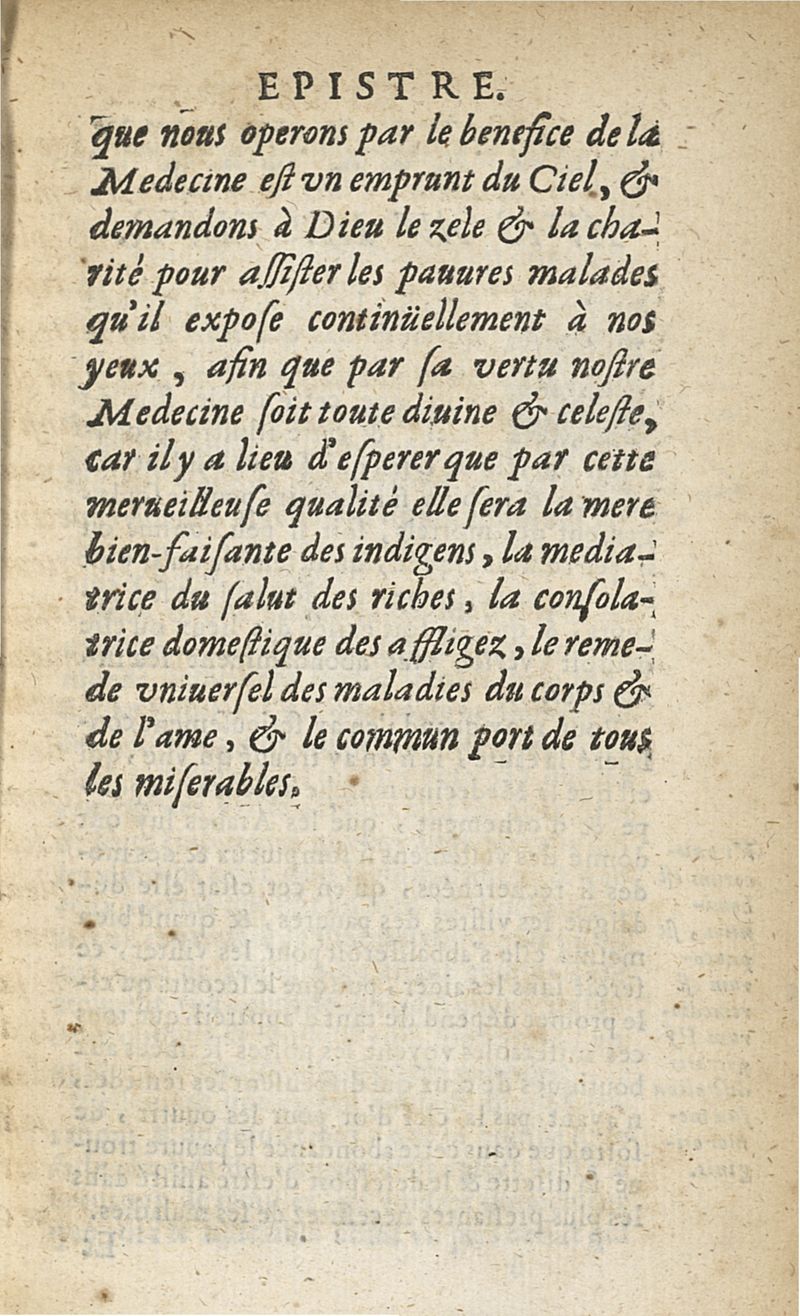 EPISTRE.
que nous operons par le benefice de la
Medecine eſt vn emprunt du Ciel, &
demandons à Dieu le zele & la cha-
rité pour aſſiſter les pauures malades
qu'il expoſe continüellement à nos
yeux, afin que par ſa vertu noſtre
Medecine ſoit toute diuine & celeſte,
car il y a lieu d'eſperer que par cette
merueilleuſe qualité elle ſera la mere
bien-faiſante des indigens, la media-
trice du ſalut des riches, la conſola-
trice domeſtique des affligez, le reme-
de vniuerſel des maladies du corps &
de l'ame, & le commun port de tous
les miſerables.